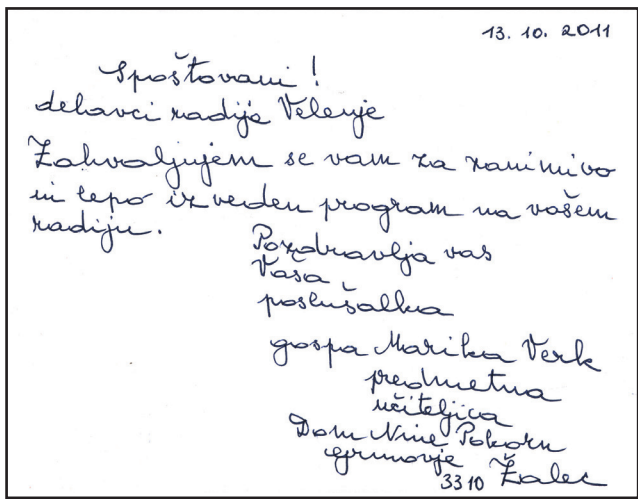 13. 10. 2011
Spoštovani!
delavci radija Velenje
Zahvaljujem se vam za zanimivo
in lepo izveden program na vašem
radiju.
Pozdravlja vas
Vaša
poslušalka
gospa Marika Verk
predmetna
učiteljica
Dom Nine Pokorn
Grmovje
3310 Žalec